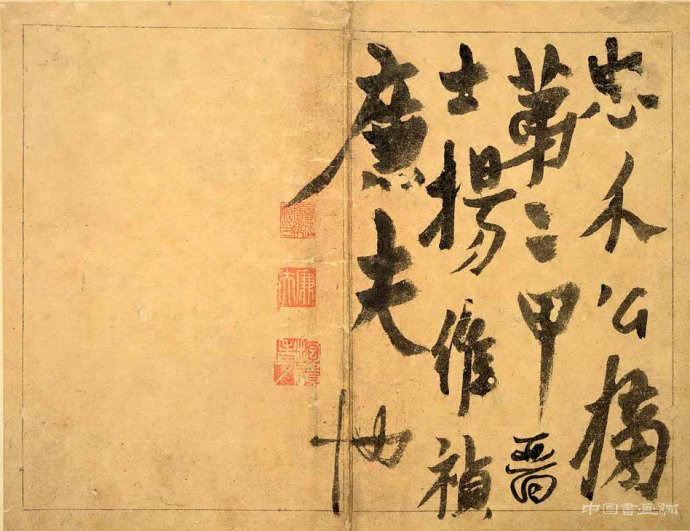 忠公榜
第二甲晋
士楊維禎
廉夫
廉夫
中国書画網